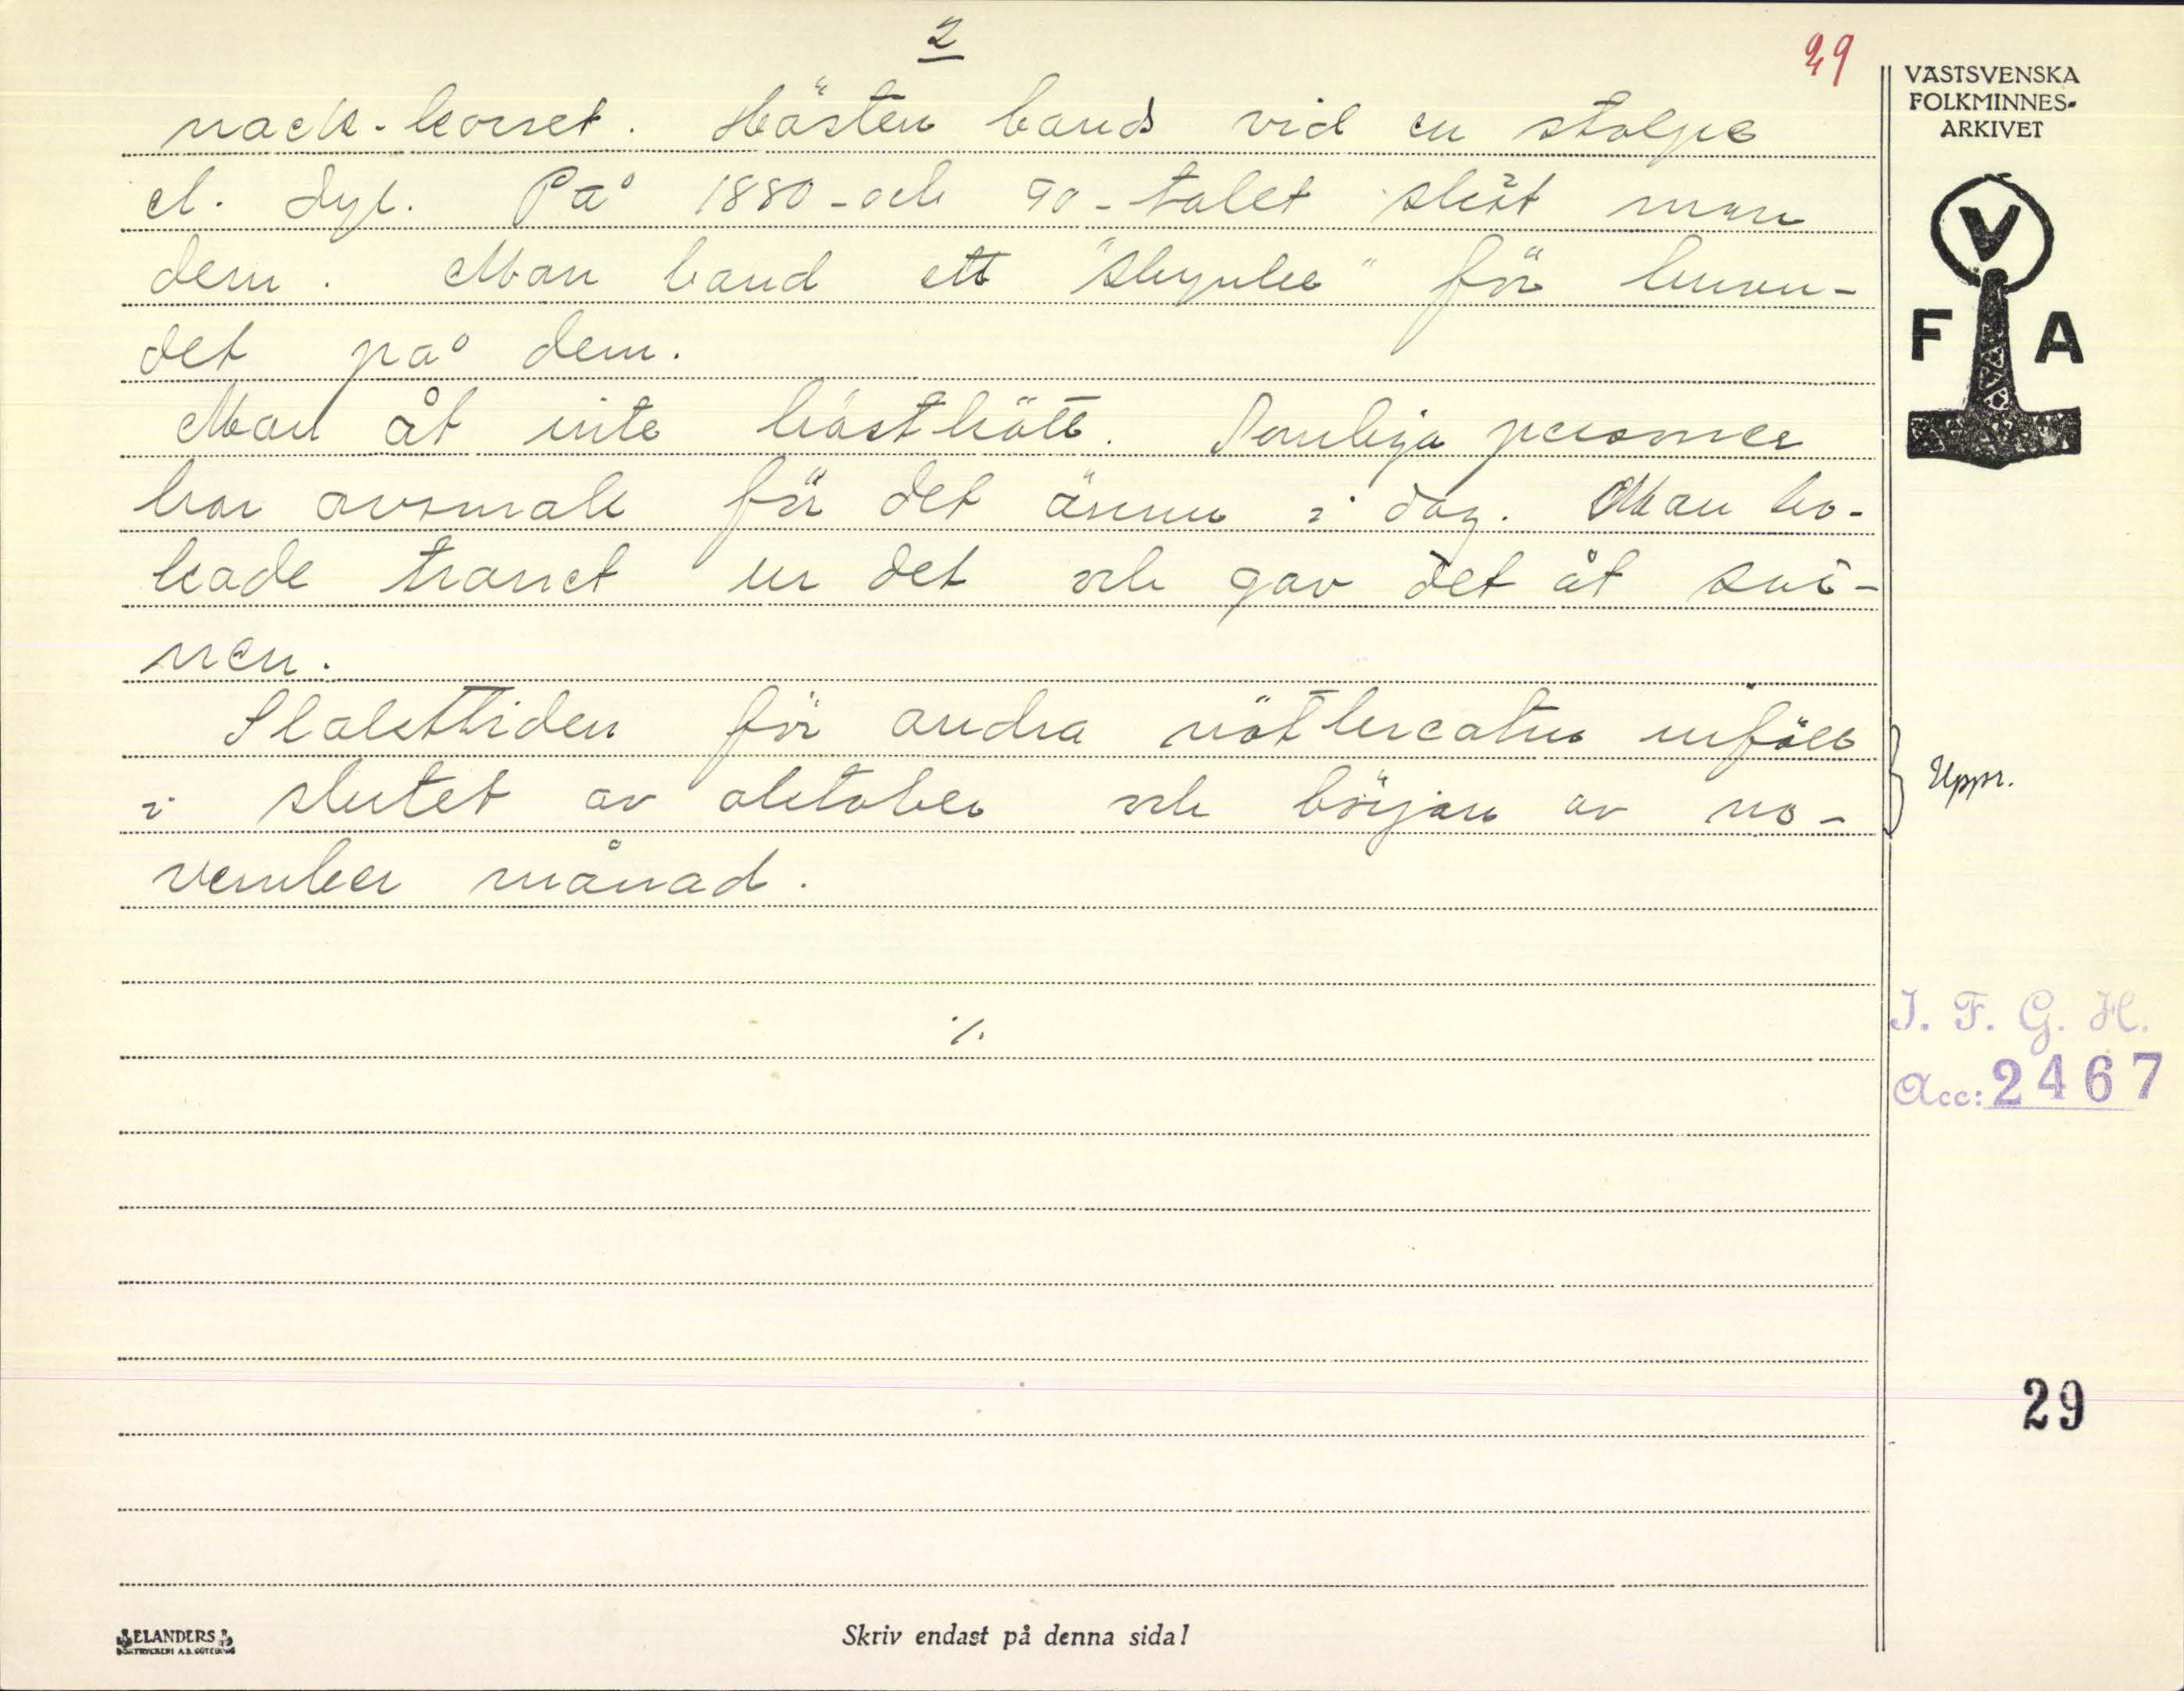 2
29
nack-korset. Hästen bands vid en stolpe
el. dyl. På 1880-och 90-talet sköt man
dem. Man band ett "skynke" för huvu-
det på dem.
Man åt inte hästkött. Somliga personer
har avsmak för det ännu i dag. Man ko-
kade tranet ur det och gav det åt svi-
nen.
Slakttiden för andra nötkreatur inföll
i slutet av oktober och början av no-
vember månad.
./.
VÄSTSVENSKA
FOLKMINNES-
ARKIVET
V
F A
Uppr.
I. F. G. H.
Acc: 2467
29
ELANDERS
BOKTRYCKERI A.B. GÖTEBORG
Skriv endast på denna sida!